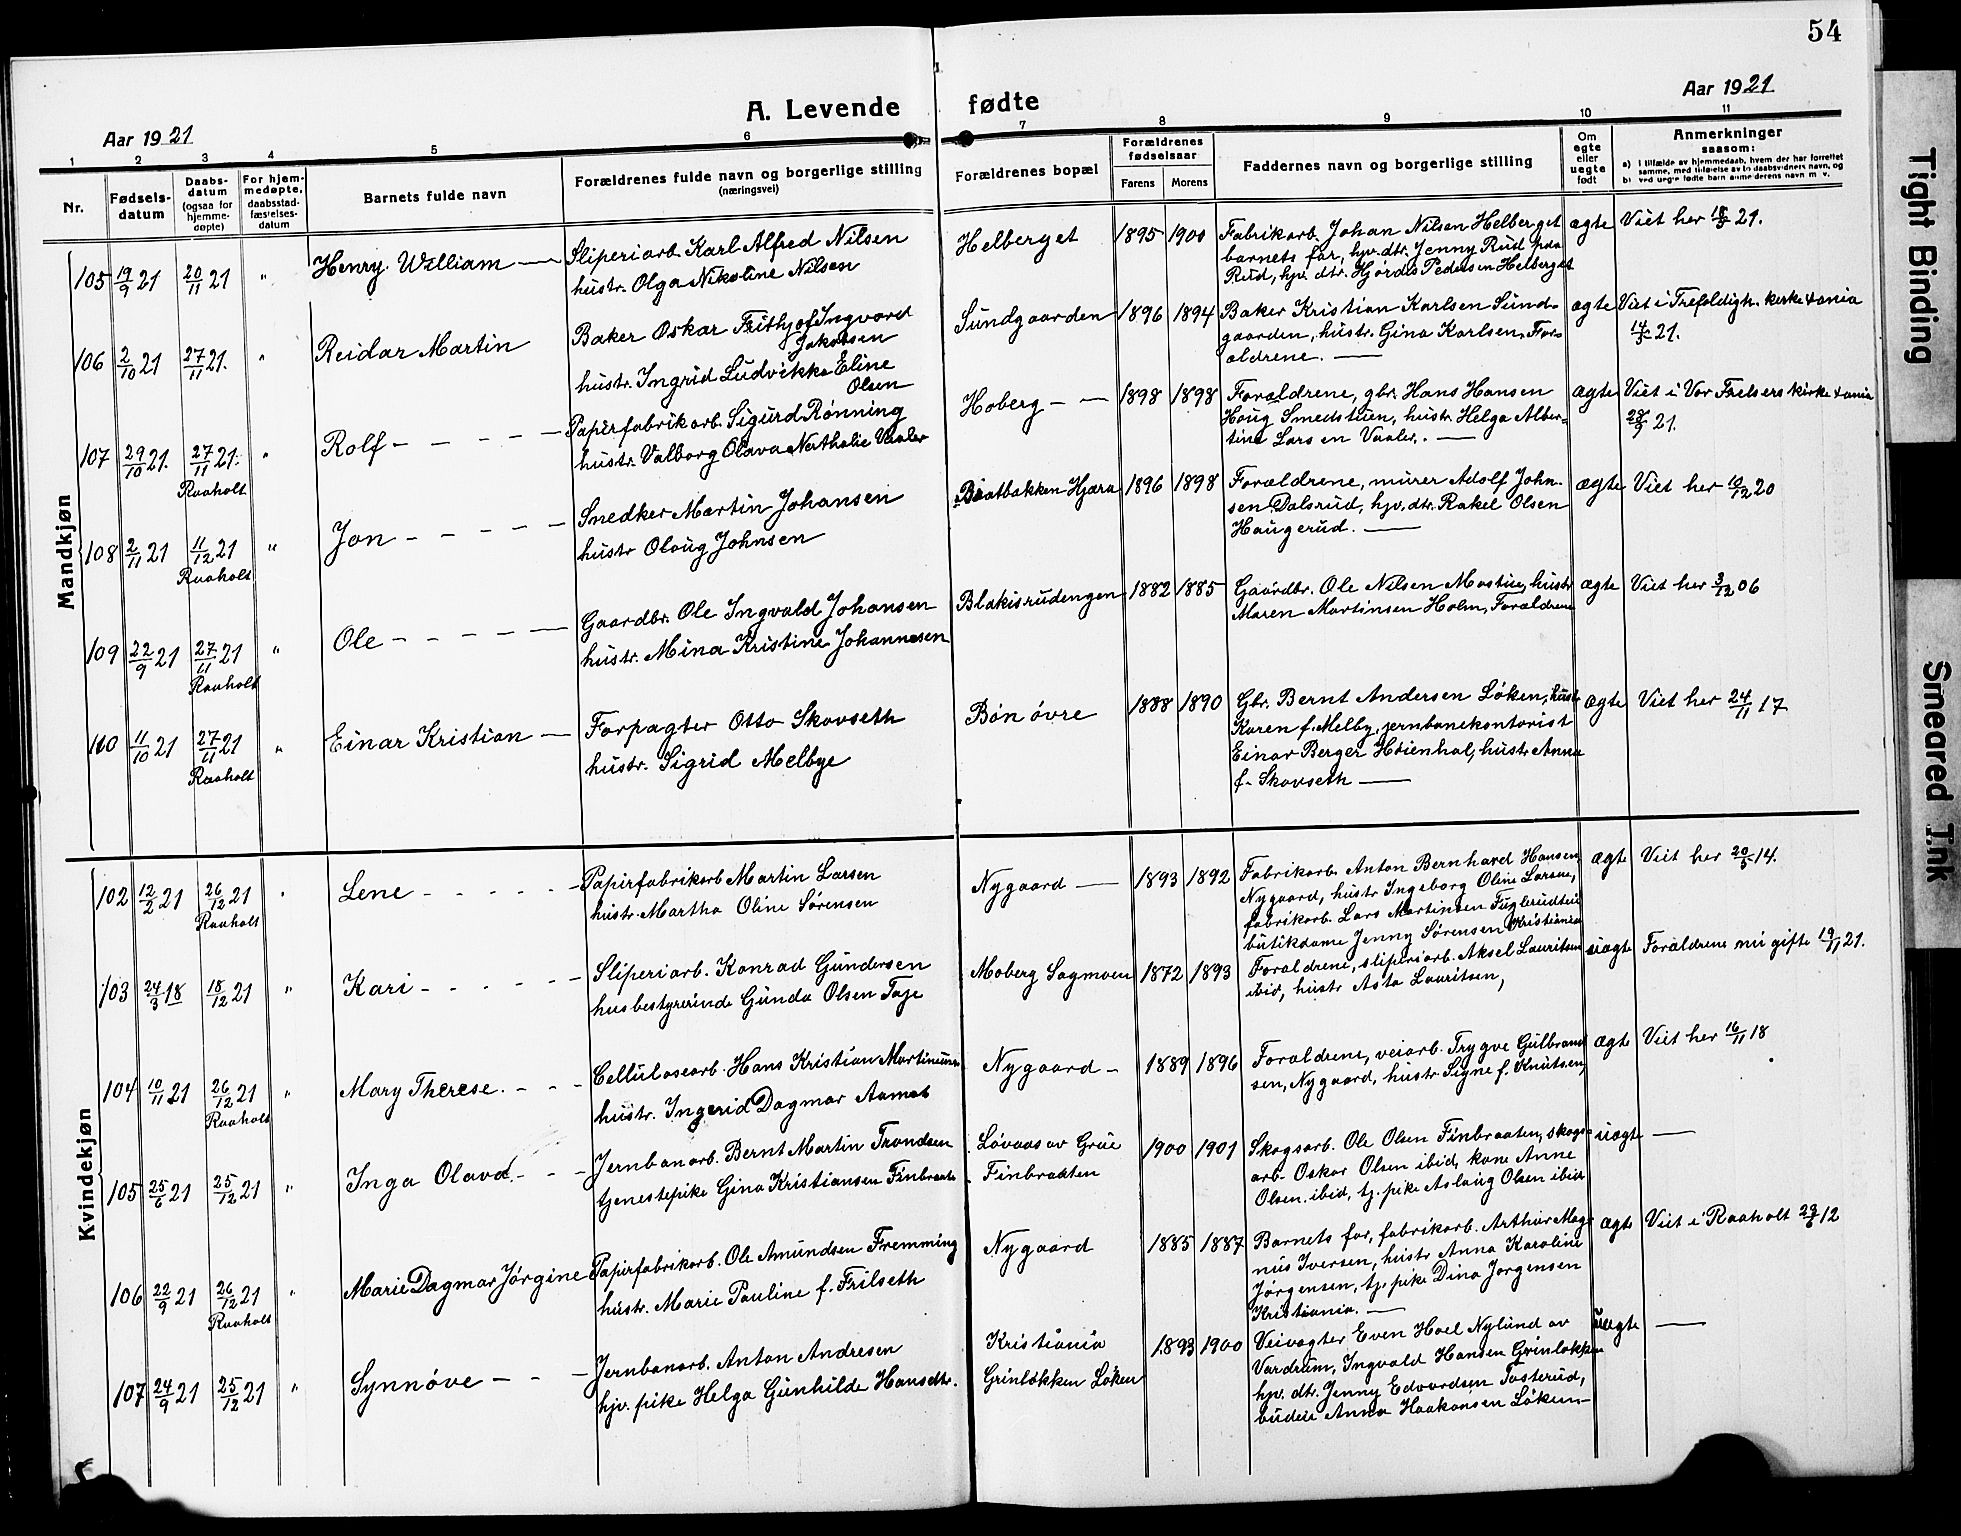 54
Aar 1921
A. Levende fødte
Aar 1921
1 2 3 4 5 6 7 8 9 10 11
Nr.
Fødsels-
datum
Daabs-
datum
(ogsaa for
hjemme-
døpte)
For hjem-
medøpte,
daabsstad-
fæstelses-
datum
Barnets fulde navn
Forældrenes fulde navn og borgerlige stilling
(næringsvei)
Forældrenes bopæl
Forældrenes
fødselsaar
Farens Morens
Faddernes navn og borgerlige stilling
Om
egte
eller
uegte
født
Anmerkninger
saasom:
a) i tilfælde av hjemmedaab, hvem der har forrettet
samme, med tilføielse av to daabsvidners navn, og
b) ved uegte fødte barn anmelderens navn m. v.
Mandkjøn
105 19/9 21 20/11 21 " Henry William —
Sliperiarb. Karl Alfred Nilsen
hustr. Olga Nikoline Nilsen
Helberget 1895 1900
Fabrikarb. Johan Nilsen Helberget
barnets far, hjv. dtr. Jenny Rud paa
Rud, hjv. dtr. Hjørdis Pedersen Helberget
ægte Viet her 21.
106 2/10 21 27/11 21. " Reidar Martin
Baker Oskar Frithjof Ingvard
Jakobsen
hustr. Ingrid Ludvikka Eline
Olsen
Sundgaarden 1896 1894
Baker Kristian Karlsen Sund-
gaarden, hustr. Gina Karlsen, For-
ældrene. —
ægte Viet i Trefoldigh. kirke Xania
14/5 21.
107 29/10 21. 27/11 21. " Rolf - - - - -
Raaholt
Papirfabrikarb. Sigurd Rønning
hustr. Valborg Olava Nathalie Vaaler
Hoberg - — 1898 1898
Forældrene, gbr. Hans Hansen
Haug Smedstuen, hustr. Helga Alber-
tine Larsen Vaaler. —
ægte Viet i Vor Frelsers kirke Xania
28/9 21.
108 2/11 21 11/12 21 " Jon - - - - -
Raaholt
Snedker Martin Johansen
hustr Olaug Johnsen
Braatbakken Hjæra 1896 1898
Forældrene, murer Adolf John-
sen Dalsrud, hjv. dtr. Rakel Olsen
Haugerud. —
ægte Viet her 10/12 20
109 22/9 21 27/11 21 " Ole - - - - -
Raaholt
Gaardbr. Ole Ingvald Johansen
hustr. Mina Kristine Johannesen
Blakisrudengen 1882 1885
Gaardbr. Ole Nilsen Mostue, hustr.
Maren Martinsen Holm, Forældrene
ægte Viet her 3/12 06
110 11/10 21 27/11 21 " Einar Kristian —
Raaholt
Forpagter Otto Skovseth
hustr. Sigrid Melbye
Bøn øvre 1888 1890
Gbr. Bernt Andersen Løken, hustr
Karen f. Melby, jernbanekontorist
Einar Berger Høienhal, hustr Anna
f. Skovseth —
ægte Viet her 24/11 17
Kvindekjøn
102 12/2 21 26/12 21 " Lene - - - - -
Raaholt
Papirfabrikarb Martin Larsen
hustr. Martha Oline Sørensen
Nygaard — 1893 1892
Fabrikarb. Anton Bernhard Hansen,
Nygaard, hustr Ingeborg Oline Larsen,
fabrikarb. Lars Martinsen
butikdame Jenny Sørensen Kristiania
ægte Viet her 20/5 14.
103 24/3 18 18/12 21 " Kari - - - - -
Sliperiarb. Konrad Gundersen
husbestyrerinde Gunda Olsen Taje
Moberg Sagmoen 1872 1893
Forældrene, sliperiarb. Aksel Lauritsen
ibid, hustr Asta Lauritsen,
uægte Forældrene nu gifte 19/11 21.
104 10/11 21 26/12 21 " Mary Therese. - -
Raaholt
Cellulosearb. Hans Kristian Martinsen
hustr. Ingerid Dagmar Aamot
Nygaard - 1889 1896
Forældrene, veiarb. Trygve Gulbrand
sen, Nygaard, hustr Signe f. Knutsen,
ægte Viet her 16/11 18
105 25/6 21 25/12 21 " Inga Olava. - -
Jernbanarb. Bernt Martin Trondsen
tjenestepike Gina Kristiansen Finbraaten
Løvaas av Grue
Finbraaten 1900 1901
Skogsarb. Ole Olsen Finbraaten, skogs-
arb. Oskar Olsen ibid, kone Anne
Olsen ibid, tj. pike Aslaug Olsen ibid
uægte —
106 22/9 21 26/12 21 " Marie Dagmar Jørgine
Raaholt
Papirfabrikarb. Ole Amundsen Fremming
hustr. Marie Pauline f. Frilseth
Nygaard 1885 1887
Barnets far, fabrikarb. Arthur Mag-
nus Iversen, hustr Anna Karoline
Jørgensen, tj. pike Dina Jørgensen
Kristiania. —
ægte Viet i Raaholt 29/6 12
107 24/9 21 25/12 21 " Synnøve - - -
Jernbanarb. Anton Andresen
hjv. pike Helga Gunhilde Hansdtr.
Kristiania
Grinløkken Løken 1893 1900
Veivogter Even Hoel Nylund av
Vardrum, Ingvald Hansen Grinløkken
hjv. dtr. Jenny Edvardsen Tosterud,
budeie Anna Haakonsen Løken —
uægte —
Tight Binding
Smeared Ink